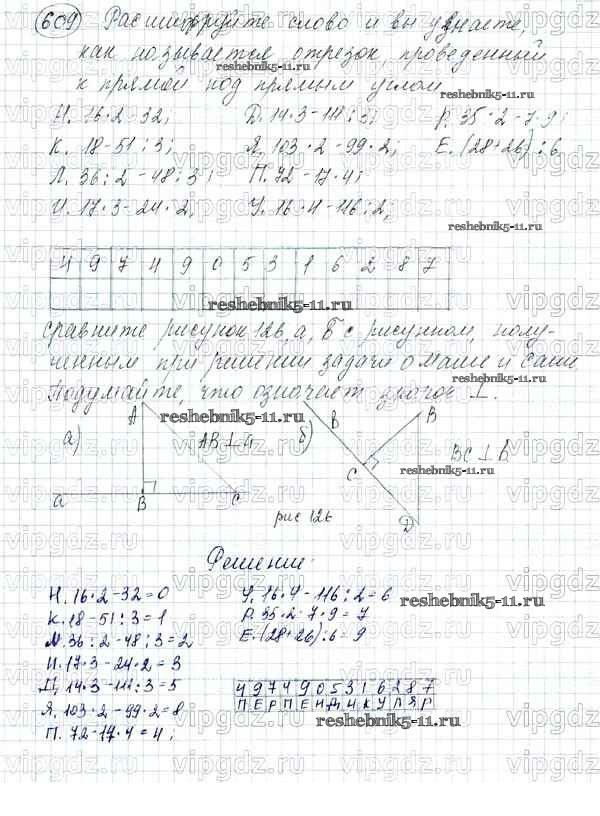 609 Расшифруйте слово и вы узнаете,
как называется отрезок, проведенный
к прямой под прямым углом.
Н. 16·2-32; Д. 14·3-111:3; Р. 35·2-7·9;
К. 18-51:3; Я. 103·2-99·2; Е. (28+26):6
Л. 36:2-48:3; П. 72-17·4;
И. 17·3-24·2; У. 16·4-116:2;
4 9 7 4 9 0 5 3 1 6 2 8 7
сравните рисунок 126, а, б с рисунком, полу-
ченным при решении задачи о Маше и Саше
Подумайте, что означает значок ⊥.
а) A AB⊥a б) B B BC⊥
a B C C D
рис 126
Решение:
Н. 16·2-32=0 У. 16·4-116:2=6
К. 18-51:3=1 Р. 35·2-7·9=7
Л. 36:2-48:3=2 Е. (28+26):6=9
И. 17·3-24·2=3
Д. 14·3-111:3=5
Я. 103·2-99·2=8
П. 72-17·4=4;
4 9 7 4 9 0 5 3 1 6 2 8 7
П Е Р П Е Н Д И К У Л Я Р
reshebnik5-11.ru
vipgdz.ru